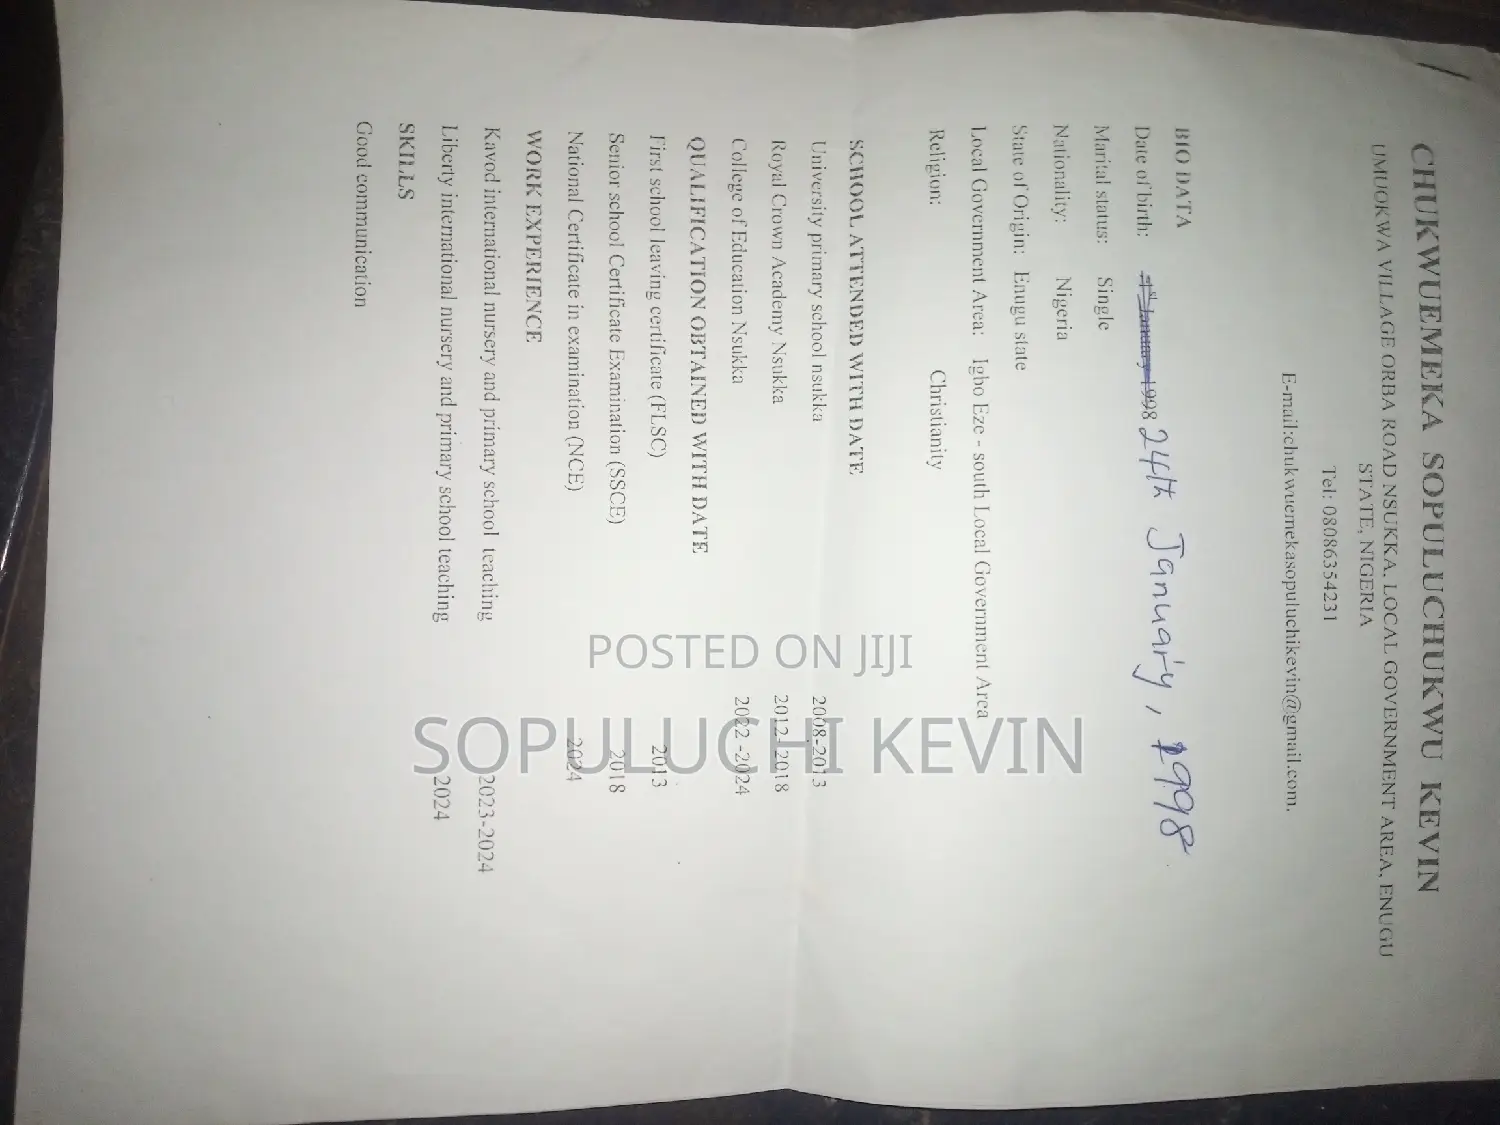 CHUKWUEMEKA SOPULUCHUKWU KEVIN
UMUOKWA VILLAGE ORBA ROAD NSUKKA, LOCAL GOVERNMENT AREA, ENUGU
STATE, NIGERIA
Tel: 08086354231
E-mail:chukwuemekasopuluchikevin@gmail.com.
BIO DATA
Date of birth: 1998 24th January, 1998
Marital status: Single
Nationality: Nigeria
State of Origin: Enugu state
Local Government Area: Igbo Eze - south Local Government Area
Religion: Christianity
SCHOOL ATTENDED WITH DATE
University primary school nsukka 2008-2013
Royal Crown Academy Nsukka 2012-2018
College of Education Nsukka 2022 -2024
QUALIFICATION OBTAINED WITH DATE
First school leaving certificate (FLSC) 2013
Senior school Certificate Examination (SSCE) 2018
National Certificate in examination (NCE) 2024
WORK EXPERIENCE
Kavod international nursery and primary school teaching 2023-2024
Liberty international nursery and primary school teaching 2024
SKILLS
Good communication
POSTED ON JIJI
SOPULUCHI KEVIN